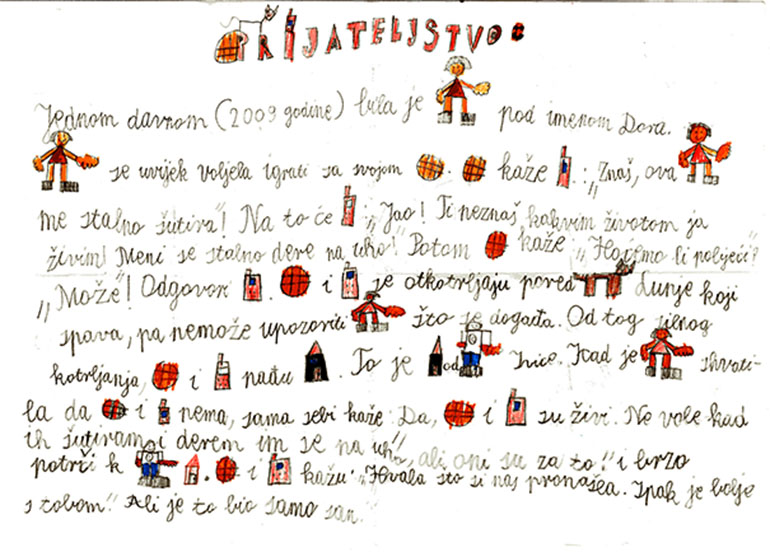 PRIJATELJSTVO
Jednom davnom (2009 godine) bila je pod imenom Dora.
se uvijek voljela igrati sa svojom . kaže : „Znaš, ova
me stalno šutira"! Na to će : „Jao! Ti neznaš kakvim životom ja
živim! Meni se stalno dere na uho!" Potom kaže „Hoćemo li pobjeći?"
„Može"! Odgovori . i je otkotrljaju pored dunje koji
spava, pa nemože upozoriti što je događa. Od tog silnog
kotrljanja, i nađu . To je od Ivice. Kad je shvati-
la da i nema, sama sebi kaže. Da, i su živi. Ne vole kad
ih šutiram i derem im se na uho", ali oni su za to!" i brzo
potrči k . i kažu: „Hvala što si nas pronašla. Ipak je bolje
s tobom." Ali je to bio samo san.